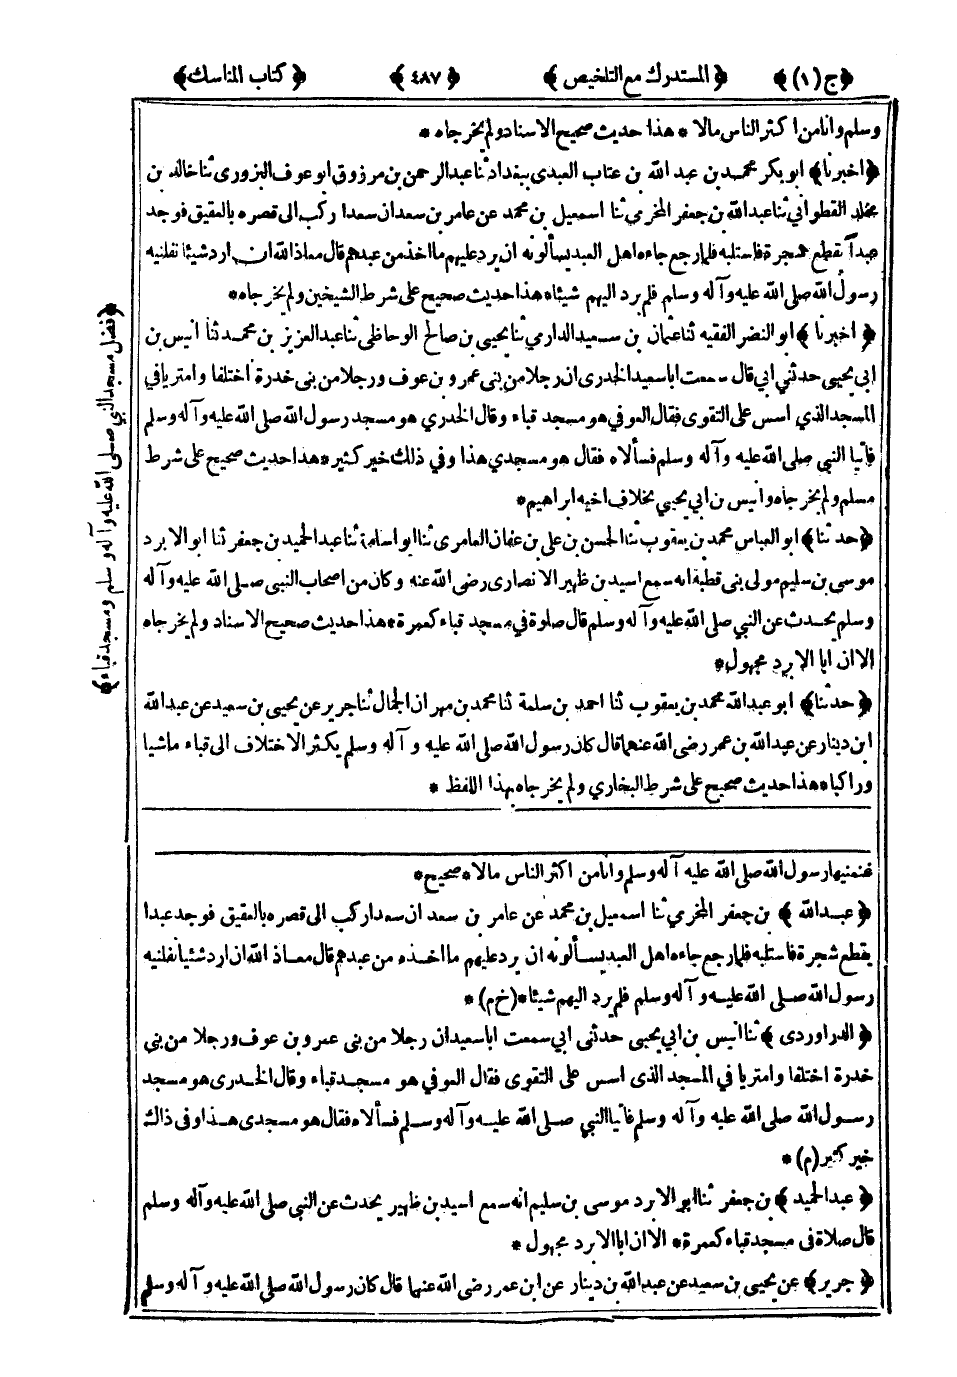 ﴿ج(١)﴾ ﴿المستدرك مع التلخيص﴾ ﴿٤٨٧﴾ ﴿كتاب المناسك﴾
وسلم وانا من اكثر الناس مالا * هذا حديث صحيح الاسناد ولم يخرجاه *
﴿اخبرنا﴾ ابو بكر محمد بن عبد الله بن عتاب العبدى ببغداد ثنا عبد الرحمن بن مرزوق ابو عوف البزورى ثنا خالد بن
مخلد القطواني ثنا عبد الله بن جعفر المخرمي ثنا اسمعيل بن محمد عن عامر بن سعد ان سعدا ركب الى قصره بالعقيق فوجد
عبداً يقطع شجرة فاستلبه فلما رجع جاءه اهل العبد يسألونه ان يرد عليهم ما اخذ من عبدهم قال معاذ الله ان ارد شيئا نفلنيه
رسول الله صلى الله عليه وآله وسلم فلم يرد اليهم شيئا * هذا حديث صحيح على شرط الشيخين ولم يخرجاه *
﴿اخبرنا﴾ ابو النضر الفقيه ثنا عثمان بن سعيد الدارمي ثنا يحيى بن صالح الوحاظى ثنا عبد العزيز بن محمد ثنا انيس بن
ابي يحيى حدثني ابي قال سمعت ابا سعيد الخدرى ان رجلا من بنى عمرو بن عوف ورجلا من بنى خدرة اختلفا وامتريا في
المسجد الذي اسس على التقوى فقال العوفي هو مسجد قباء وقال الخدري هو مسجد رسول الله صلى الله عليه وآله وسلم
فأتيا النبي صلى الله عليه وآله وسلم فسألاه فقال هو مسجدي هذا وفي ذلك خير كثير * هذا حديث صحيح على شرط
مسلم ولم يخرجاه وانيس بن ابي يحيى بخلاف اخيه ابراهيم *
﴿حدثنا﴾ ابو العباس محمد بن يعقوب ثنا الحسن بن على بن عفان العامرى ثنا ابو اسامة ثنا عبد الحميد بن جعفر ثنا ابو الابرد
موسى بن سليم مولى بنى قطبة انه سمع اسيد بن ظهير الانصارى رضى الله عنه وكان من اصحاب النبى صلى الله عليه وآله
وسلم يحدث عن النبي صلى الله عليه وآله وسلم قال صلوة في مسجد قباء كعمرة * هذا حديث صحيح الاسناد ولم يخرجاه
الا ان ابا الابرد مجهول *
﴿حدثنا﴾ ابو عبد الله محمد بن يعقوب ثنا احمد بن سلمة ثنا محمد بن مهران الجمال ثنا جرير عن يحيى بن سعيد عن عبد الله
ابن دينار عن عبد الله بن عمر رضى الله عنهما قال كان رسول الله صلى الله عليه وآله وسلم يكثر الاختلاف الى قباء ماشيا
وراكبا * هذا حديث صحيح على شرط البخاري ولم يخرجاه بهذا اللفظ *
﴿فضل مسجد النبي صلى الله عليه وآله وسلم ومسجد قباء﴾
فنمنيها رسول الله صلى الله عليه آله وسلم وانا من اكثر الناس مالا * صحيح *
﴿عبد الله﴾ بن جعفر المخرمي ثنا اسمعيل بن محمد عن عامر بن سعد ان سعدا ركب الى قصره بالعقيق فوجد عبدا
يقطع شجرة فاستلبه فلما رجع جاءه اهل العبد يسألونه ان يرد عليهم ما اخذه من عبدهم قال معاذ الله ان ارد شئيا نفلنيه
رسول الله صلى الله عليه وآله وسلم فلم يرد اليهم شيئا * (خ م) *
﴿الدراوردى﴾ ثنا انيس بن ابي يحيى حدثنى ابي سمعت ابا سعيد ان رجلا من بنى عمرو بن عوف ورجلا من بنى
خدرة اختلفا وامتريا في المسجد الذى اسس على التقوى فقال العوفي هو مسجد قباء وقال الخدرى هو مسجد
رسول الله صلى الله عليه وآله وسلم فأتيا النبي صلى الله عليه وآله وسلم فسألاه فقال هو مسجدى هذا وفى ذاك
خير كثير (م) *
﴿عبد الحميد﴾ بن جعفر ثنا ابو الابرد موسى بن سليم انه سمع اسيد بن ظهير يحدث عن النبي صلى الله عليه وآله وسلم
قال صلاة فى مسجد قباء كعمرة * الا ان ابا الابرد مجهول *
﴿جرير﴾ عن يحيى بن سعيد عن عبد الله بن دينار عن ابن عمر رضى الله عنهما قال كان رسول الله صلى الله عليه وآله وسلم